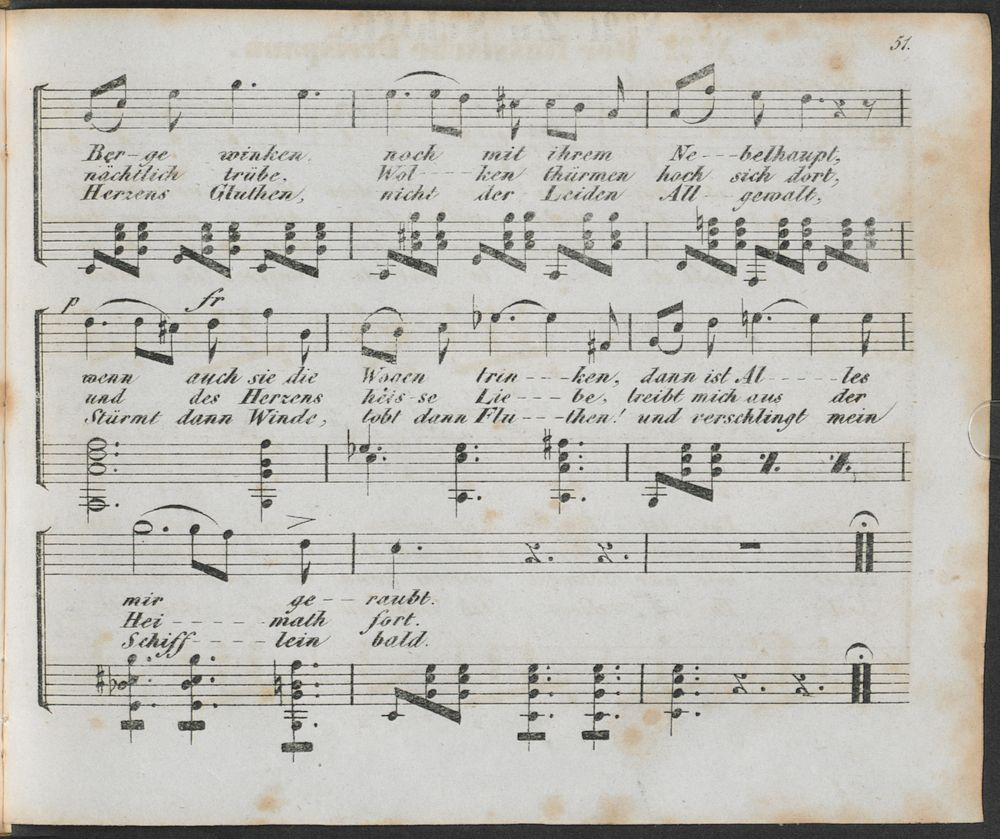 51.
Ber-ge winken, noch mit ihrem Ne---belhaupt,
nächtlich trübe, Wol----ken thürmen hoch sich dort,
Herzens Gluthen, nicht der Leiden All--gewalt,
p fr
wenn auch sie die Wogen trin---ken, dann ist Al-----les
und des Herzens heis-se Lie---be, treibt mich aus der
Stürmt dann Winde, tobt dann Flu---then! und verschlingt mein
mir ge--raubt.
Hei------math fort.
Schiff-----lein bald.